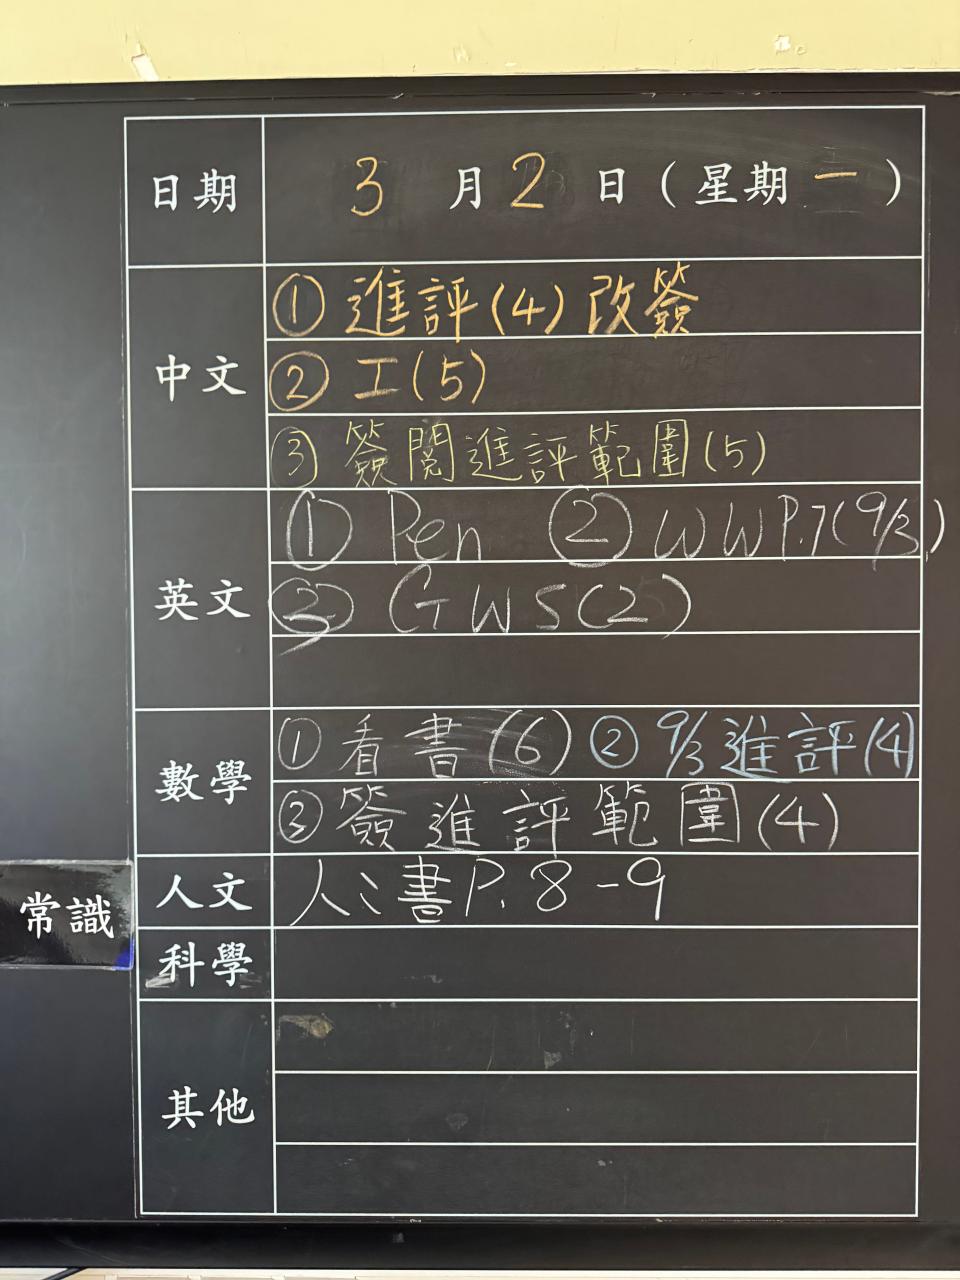 日期 3月2日（星期一）
中文 ①進評(4)改簽
②工(5)
③簽閱進評範圍(5)
英文 ①Pen ②WWP.7(9/3)
③GWS(2)
數學 ①看書(6) ②9/3進評(4)
③簽進評範圍(4)
人文 人:書P.8-9
常識
科學
其他